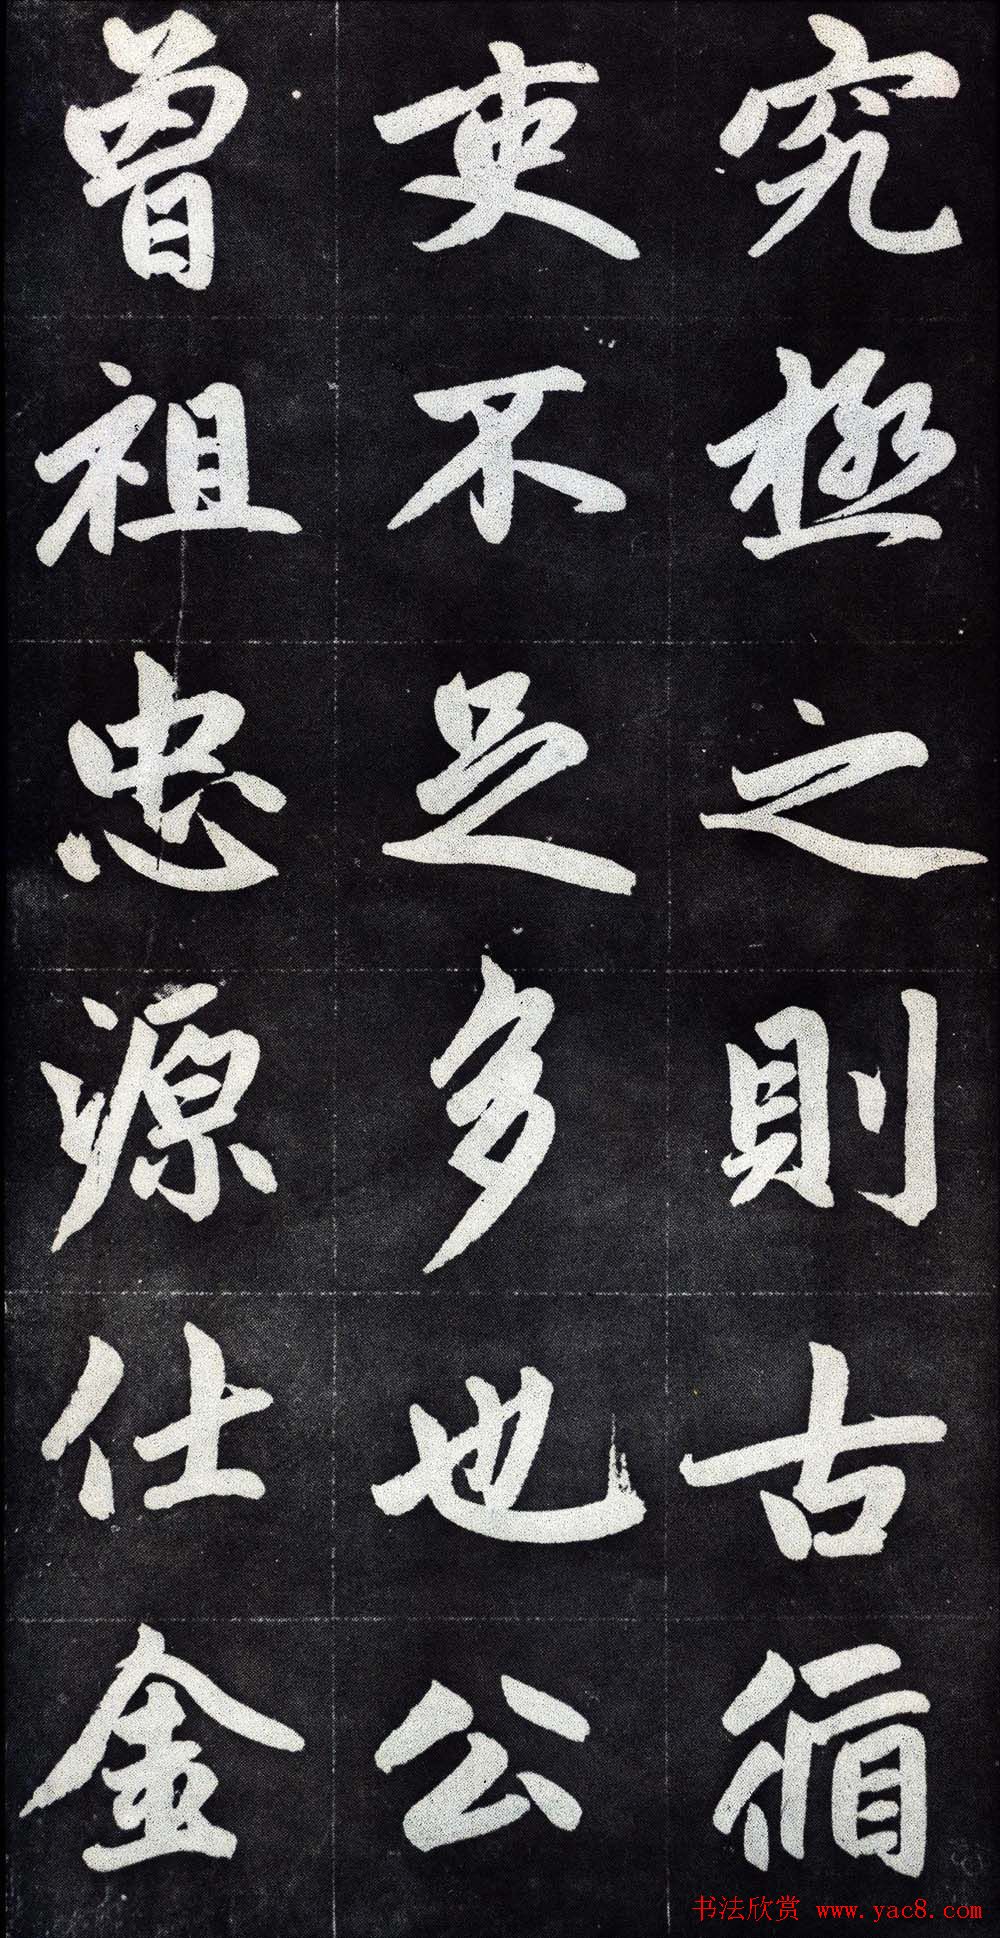 究極之則古循
吏不足多也公
曾祖忠源仕金
书法欣赏 www.yac8.com